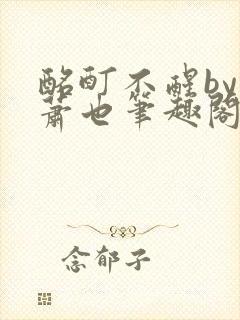 酩酊不醒by
萧也筆趣阁
念郁子